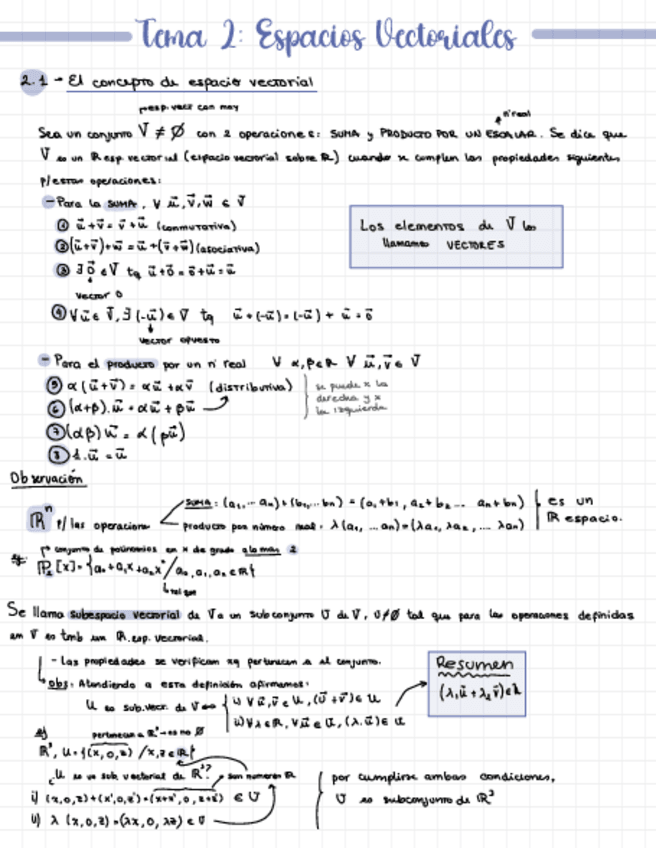 Tema 2: Espacios Vectoriales
2.1 - El concepto de espacio vectorial
esp. vect con may
nº real
Sea un conjunto V ≠ ∅ con 2 operaciones: SUMA y PRODUCTO POR UN ESCALAR. Se dice que
V es un R esp. vectorial (espacio vectorial sobre R) cuando se cumplen las propiedades siguientes
p/estas operaciones:
- Para la SUMA, ∀ u⃗, v⃗, w⃗ ∈ V
① u⃗ + v⃗ = v⃗ + u⃗ (conmutativa)
② (u⃗ + v⃗) + w⃗ = u⃗ + (v⃗ + w⃗) (asociativa)
③ ∃ 0⃗ ∈ V tq u⃗ + 0⃗ = 0⃗ + u⃗ = u⃗
vector 0
④ ∀ u⃗ ∈ V, ∃ (-u⃗) ∈ V tq u⃗ + (-u⃗) = (-u⃗) + u⃗ = 0⃗
vector opuesto
Los elementos de V los
llamamos VECTORES
- Para el producto por un nº real ∀ α, β ∈ R ∀ u⃗, v⃗ ∈ V
⑤ α(u⃗ + v⃗) = αu⃗ + αv⃗ (distributiva)
⑥ (α+β).u⃗ = αu⃗ + βu⃗
⑦ (αβ)u⃗ = α(βu⃗)
⑧ 1.u⃗ = u⃗
se puede x la
derecha y x
la izquierda
Observación
Rⁿ p/ las operaciones
SUMA: (a₁,... an) + (b₁,... bn) = (a₁+b₁, a₂+b₂ ... an+bn)
producto por número real: λ(a₁, ... an) = (λa₁, λa₂, ... λan)
es un
R espacio.
conjunto de polinomios en x de grado a lo mas 2
ej: P₂[x] = {a₀ + a₁x + a₂x² / a₀, a₁, a₂ ∈ R}
tal que
Se llama subespacio vectorial de V a un subconjunto U de V, U≠∅ tal que para las operaciones definidas
en V es tmb un R. esp. vectorial.
- Las propiedades se verifican xq pertenecen a el conjunto.
obs: Atendiendo a esta definición afirmamos:
U es sub.vect. de V ⇔ i) ∀ u⃗, v⃗ ∈ U, (u⃗ + v⃗) ∈ U
ii) ∀ λ ∈ R, ∀ u⃗ ∈ U, (λ.u⃗) ∈ U
Resumen
(λ₁u⃗ + λ₂v⃗) ∈ U
ej pertenecen a R³ → es no ∅
R³, U = {(x,0,z) / x,z ∈ R}
¿U es un sub. vectorial de R³? son numeros R
i) (x,0,z) + (x',0,z') = (x+x', 0, z+z') ∈ U
ii) λ (x,0,z) = (λx, 0, λz) ∈ U
por cumplirse ambas condiciones,
U es subconjunto de R³